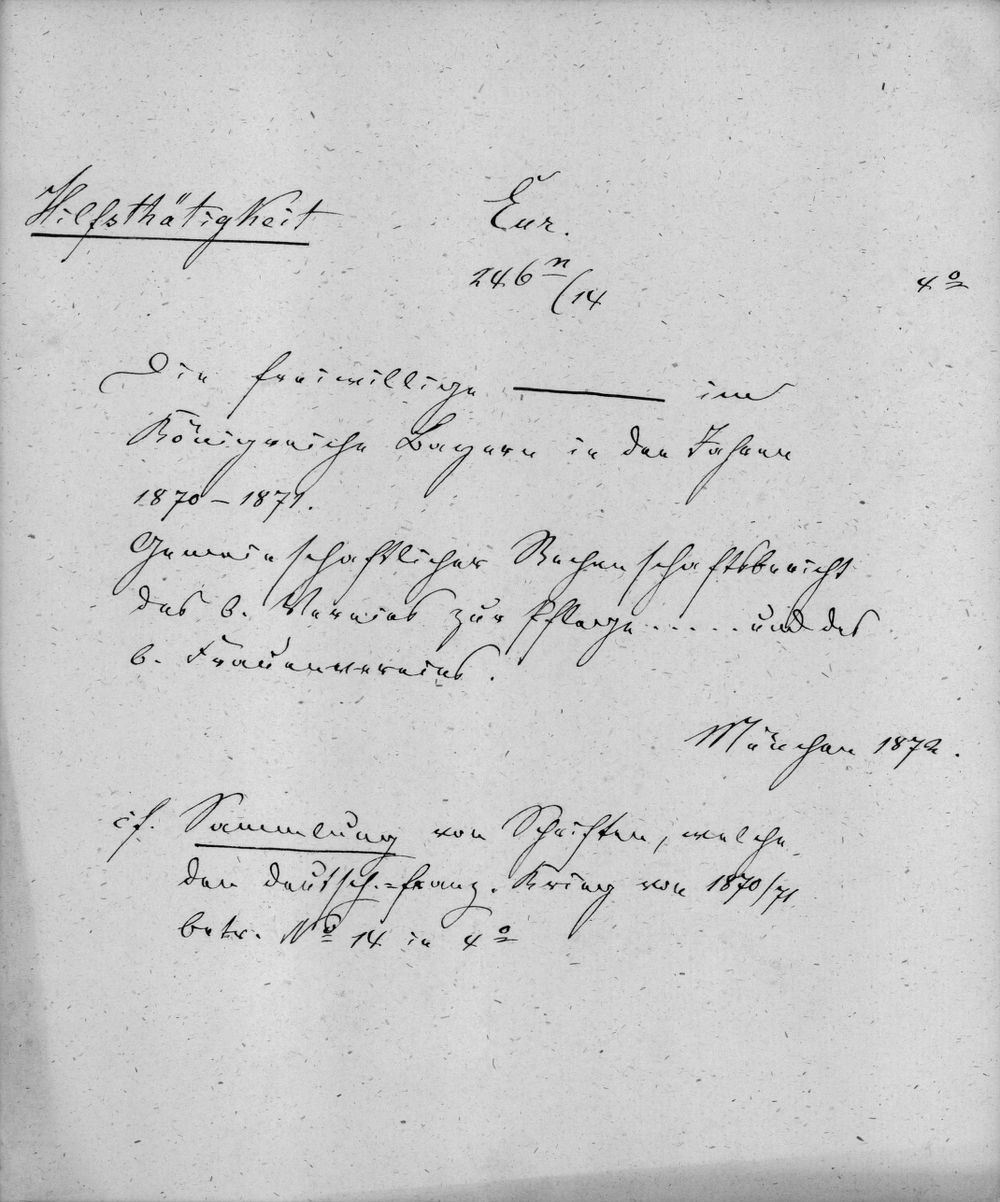 Hilfsthätigkeit
Eur.
246 n/14
4o
Die freiwillige ——— im
Königreiche Bayern in den Jahren
1870 – 1871.
Gemeinschaftlicher Rechenschaftsbericht
des b. Vereins zur Pflege . . . . . und des
b. Frauenvereins.
München 1872.
cf. Sammlung von Schriften, welche
den deutsch.=franz. Krieg von 1870/71
betr. No 14 in 4o